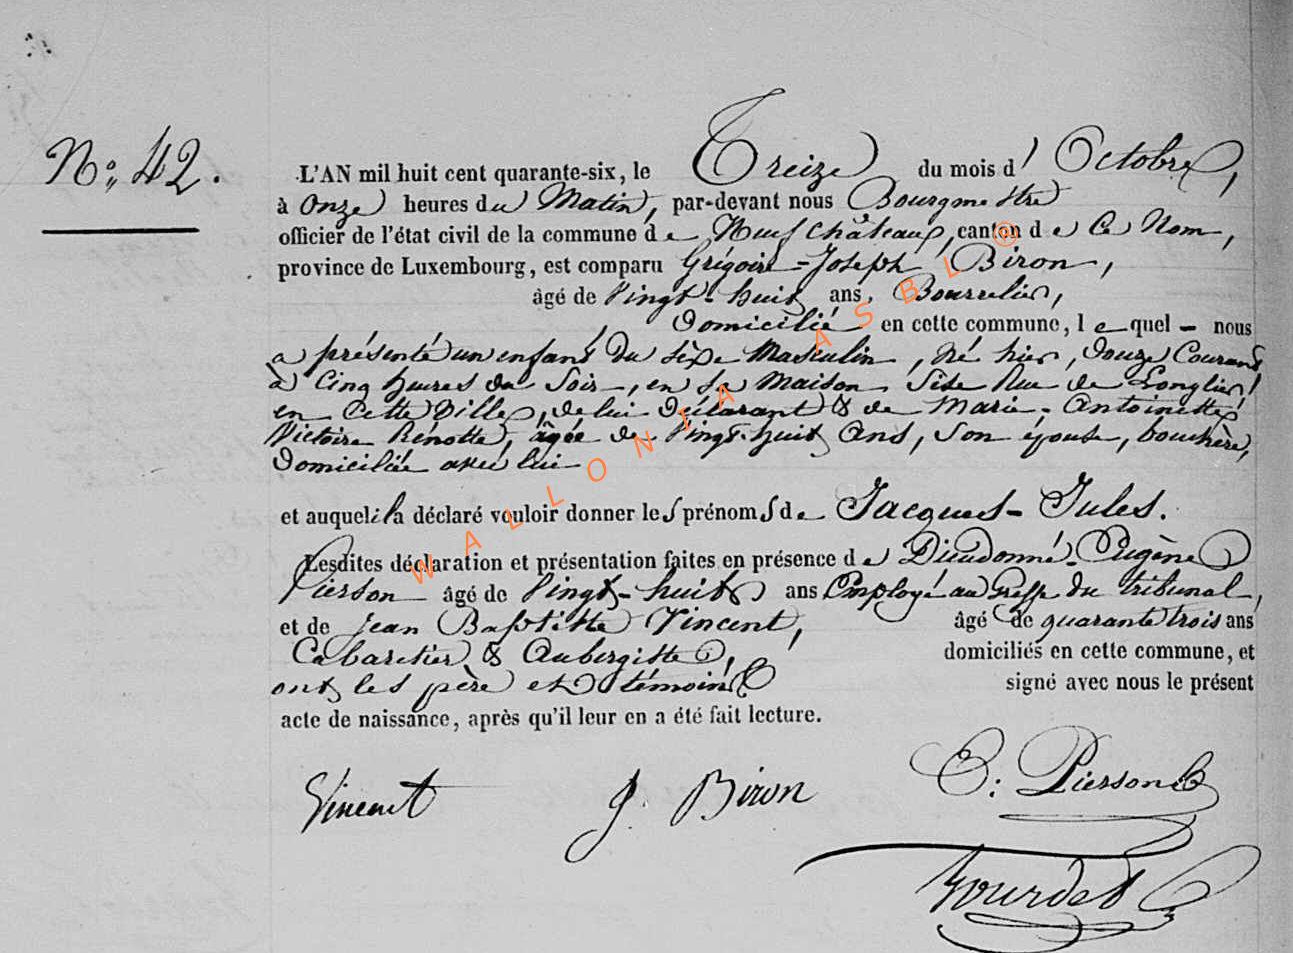 N° 42.
L'AN mil huit cent quarante-six, le Treize du mois d' Octobre,
à Onze heures du Matin, par-devant nous Bourgmestre
officier de l'état civil de la commune de Neufchâteau, canton de Ce Nom,
province de Luxembourg, est comparu Grégoire-Joseph Biron,
âgé de Vingt-huit ans, Bourrelier,
Domicilié en cette commune, lequel - nous
a présenté un enfant du sèxe Masculin, né hier, douze Courant
à Cinq heures du Soir, en sa Maison Sise Rue de Longlier,
en Cette Ville, de lui déclarant & de Marie-Antoinette
Victoire Rénotte, âgée de Vingt-huit Ans, Son épouse, bouchère,
Domiciliée avec lui
et auquel il a déclaré vouloir donner les prénoms de Jacques-Jules.
Lesdites déclaration et présentation faites en présence de Dieudonné-Eugène
Pierson âgé de Vingt-huit ans Employé au Greffe du tribunal,
et de Jean Baptiste Vincent, âgé de quarante trois ans
Cabaretier & Aubergiste, domiciliés en cette commune, et
ont les père et témoins signé avec nous le présent
acte de naissance, après qu'il leur en a été fait lecture.
Vincent J. Biron E. Pierson
Gourdet
WALLONIA ASBL ®